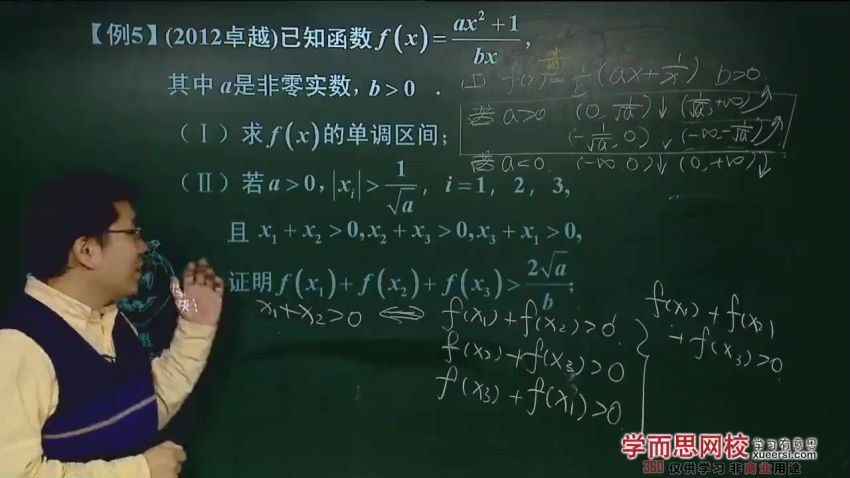 【例5】(2012卓越)已知函数 f(x)=\frac{ax^2+1}{bx},
其中 a是非零实数, b>0 .
(Ⅰ) 求 f(x) 的单调区间;
(Ⅱ) 若 a>0, |x_i|>\frac{1}{\sqrt{a}}, i=1, 2, 3,
且 x_1+x_2>0, x_2+x_3>0, x_3+x_1>0,
证明 f(x_1)+f(x_2)+f(x_3)>\frac{2\sqrt{a}}{b};
f(x)=\frac{1}{b}(ax+\frac{1}{x}) b>0.
若 a>0 (0, \frac{1}{\sqrt{a}})↓ (\frac{1}{\sqrt{a}}, +∞)↗
(-\frac{1}{\sqrt{a}}, 0)↓ (-∞, -\frac{1}{\sqrt{a}})↗
若 a<0. (-∞ 0)↓ (0, +∞)↓
x_1+x_2>0 ⟺ f(x_1)+f(x_2)>0.
f(x_2)+f(x_3)>0
f(x_3)+f(x_1)>0
f(x_1)+f(x_2)
+f(x_3)>0
学而思网校 学习有意思
xueersi.com
360 仅供学习 非商业用途